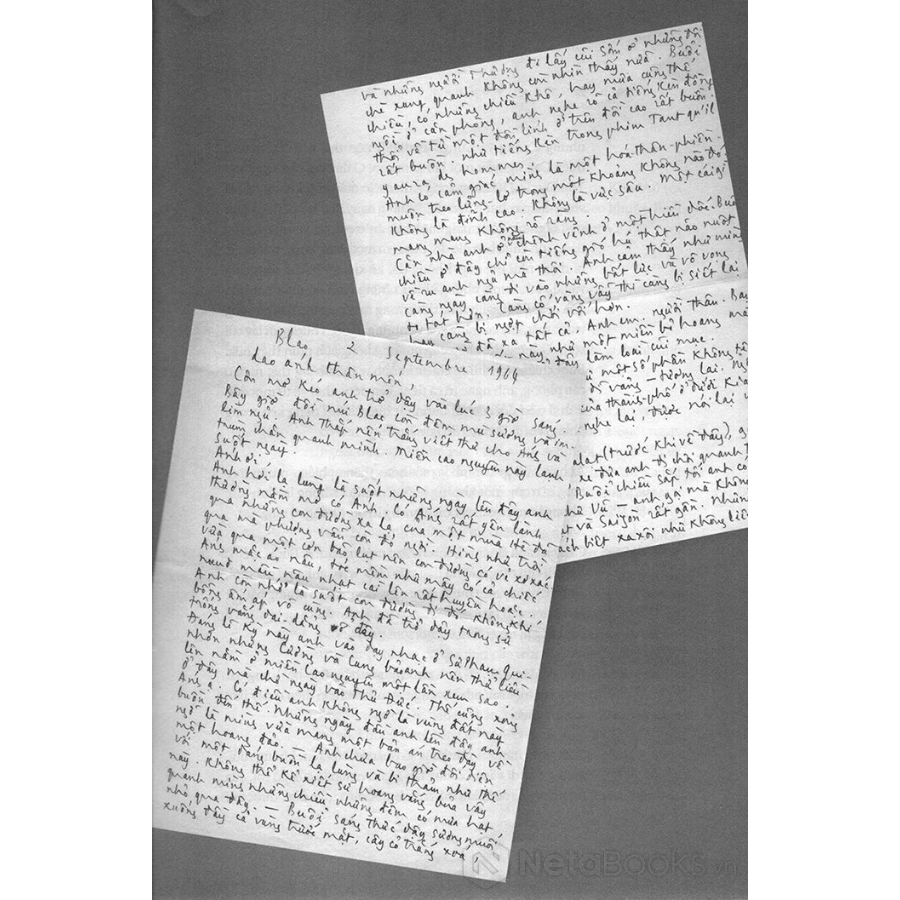 Blao 2 Septembre 1964
dao ánh thân mến,
Cơn mơ kéo anh trở dậy vào lúc 3 giờ sáng.
Bây giờ đồi núi Blao còn đêm mù sương và im
lìm ngủ. Anh thắp nến trắng viết thư cho Ánh và
trùm chăn quanh mình. Miền cao nguyên này lạnh
suốt ngày.
Ánh ơi,
Anh hơi lạ lùng là suốt những ngày lên đây anh
thường nằm mơ có Ánh. Có Ánh rất yên lành
qua những con đường xa lạ của một mùa Hè đã
qua mà phượng vẫn còn đỏ ngời. Hình như trời
vừa qua một cơn bão lụt nên con đường có vẻ xơ xác
Ánh mặc áo nâu, tóc mềm như mây có cả chiếc
nơ màu nâu nhạt cài lên rất huyền hoặc.
Anh còn nhớ là suốt con đường đi đó không khí
bỗng ấm áp vô cùng. Anh đã trở dậy trong sự
trống vắng dai dẳng ở đây.
Đáng lẽ kỳ này anh vào dạy nhạc ở Sư Phạm Qui-
nhơn nhưng Cường và Cung bảo anh nên thử liều
lên nằm ở miền cao nguyên một lần xem sao.
ở đây mà chờ ngày vào Thủ Đức. Thế cũng xong
Ánh ạ. Có điều anh không ngờ là vùng đất này
buồn đến thế. Những ngày đầu anh lên đây anh
ngỡ là mình vừa mang một bản án treo đày về
một hoang đảo. — Anh chưa bao giờ đối diện
với một dáng buồn lạ lùng và bi thảm như thế
này. Không thể kể xiết sự hoang vắng bủa vây
quanh mình những chiều những đêm có mưa hạt
nhỏ qua đây. — Buổi sáng thức dậy sương muối
xuống đầy cả vùng trước mặt, cây cỏ trắng xóa
và những người Thượng đi lấy củi sớm ở những đồi
chè xung quanh không còn nhìn thấy nữa. Buổi
chiều, có những chiều khô, hay mưa cũng thế
ngồi ở căn phòng, anh nghe rõ cả tiếng kèn đồng
thổi về từ một đồn lính ở trên đồi cao rất buồn.
rất buồn. như tiếng kèn trong phim Tant qu'il
y aura des hommes.
Anh có cảm giác mình là một hóa-thân-phiền-
muộn treo lửng-lơ trong một khoảng không nào đó.
Không là đỉnh cao. Không là vực sâu. Một cái gì
mang mang không rõ ràng.
Căn nhà anh ở chênh vênh ở một triền dốc. Buổi
chiều ở đây chỉ còn tiếng gió hú thật não nuột
về ru anh ngủ mà thôi. Anh cảm thấy như mình
càng ngày càng đi vào những bất lực và vô vọng
tồi tệ hơn. Càng cố vùng vẫy thì càng bị siết lại
hay càng bị ngột chới với hơn.
đã xa tất cả. Anh em. người thân. Bạn
này như một miền bỏ hoang mà
đây làm loài cú mục.
một số phận không tên
dĩ vãng — tương lai.
của thành-phố ở dưới kia
nghe lại, được nói lại
alat (trước khi về đây),
xe đưa anh đi chơi quanh
Buổi chiều sắp tối anh có
Thu Vũ — anh gọi mà không
t và Saigon rất gần. Những
cách biệt xa xôi như không liên
NetaBooks.vn